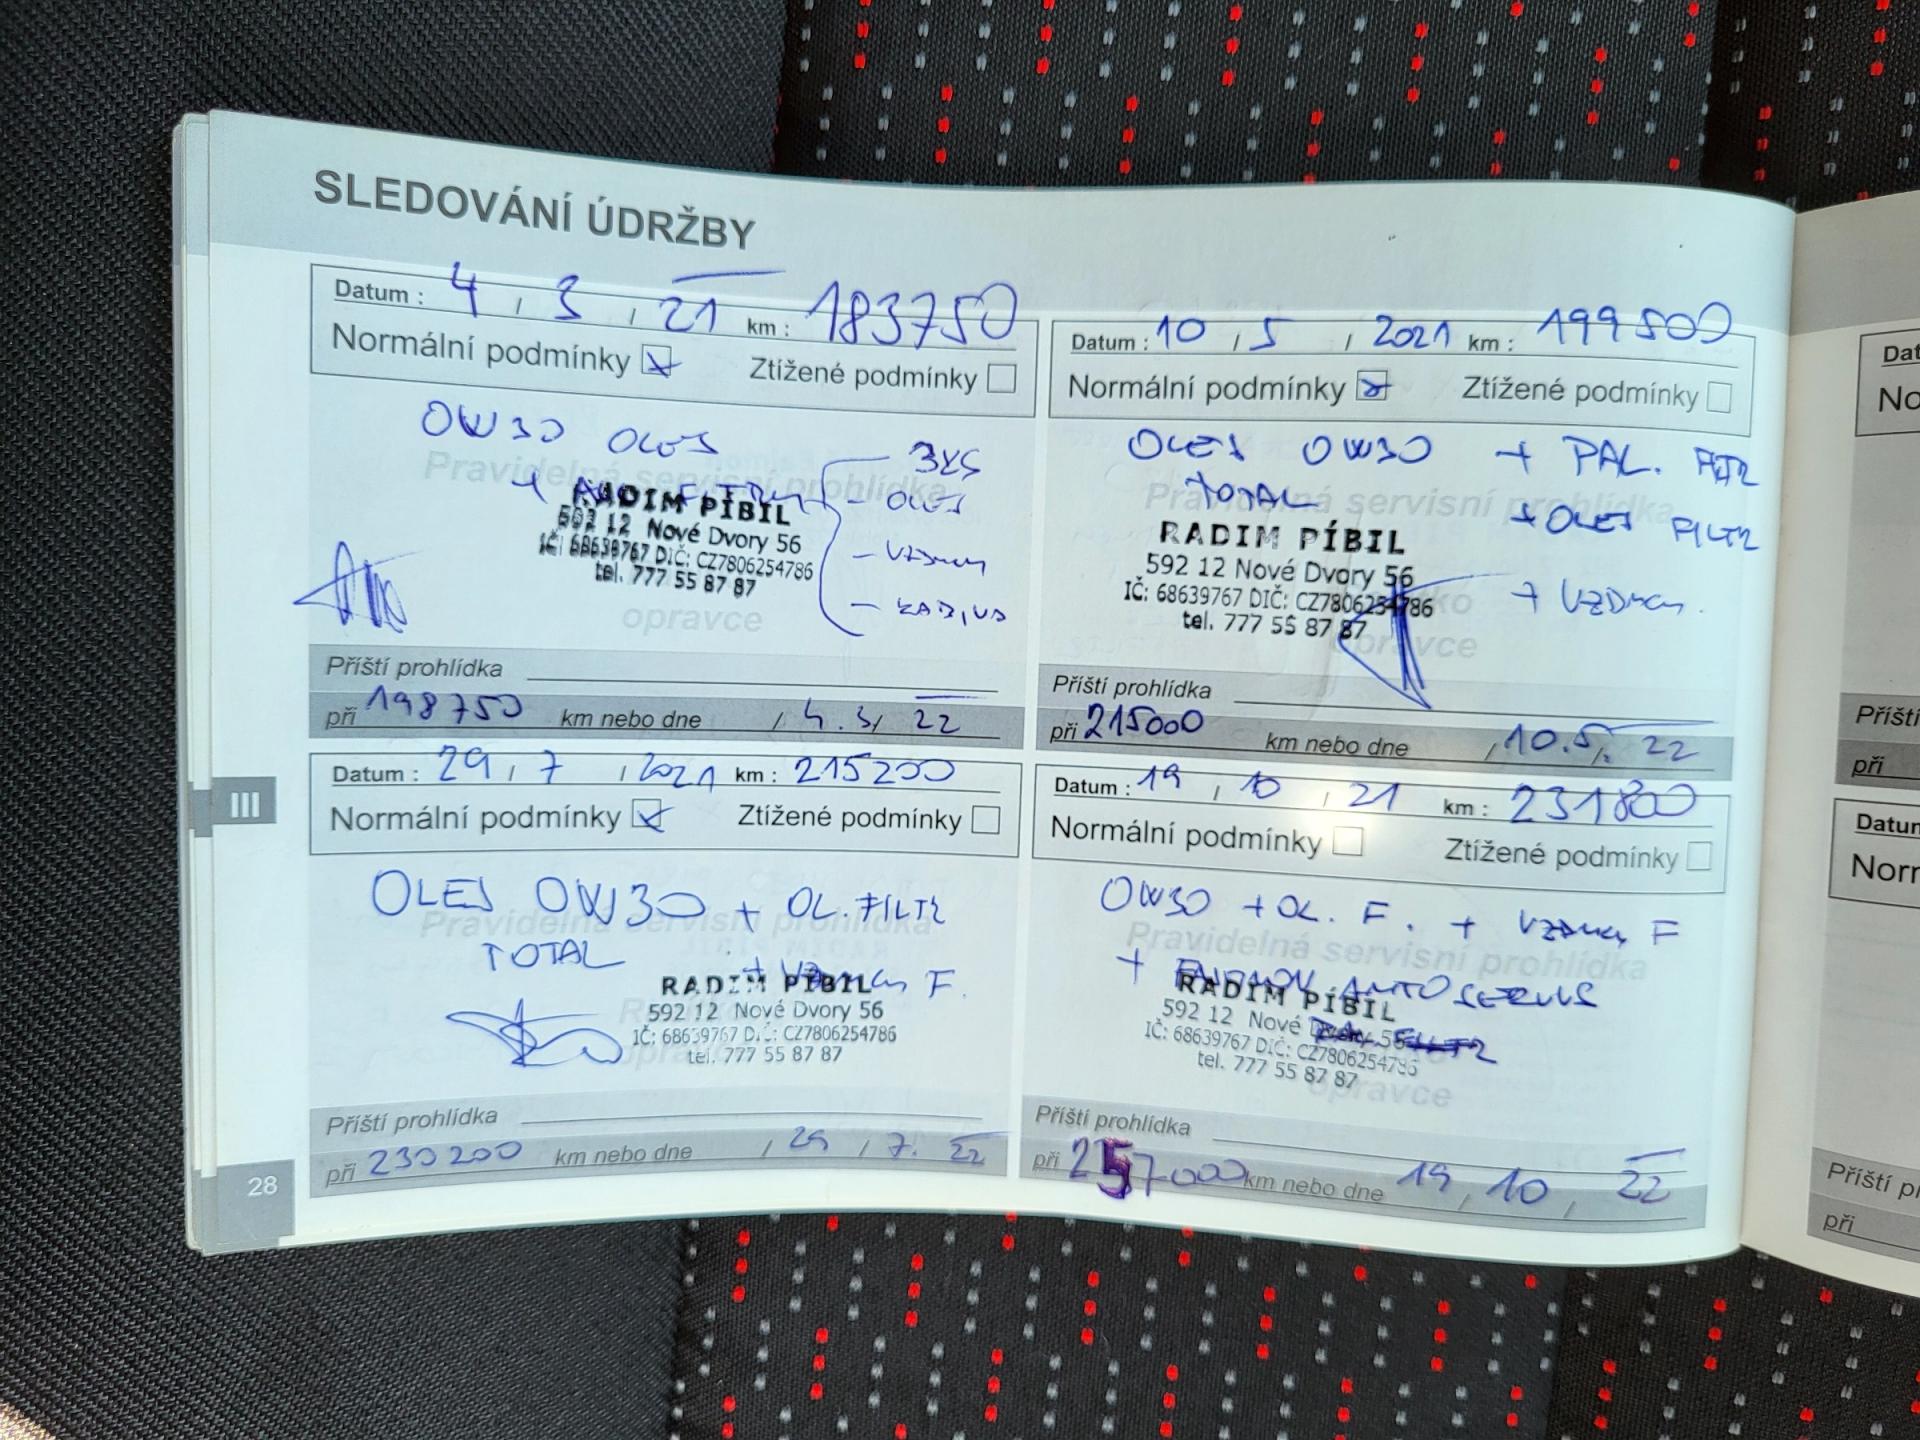 SLEDOVÁNÍ ÚDRŽBY
Datum : 4 / 3 / 21 km : 183750
Normální podmínky Ztížené podmínky
OW30 OLEJ
Pravidelná servisní prohlídka
- OLEJ
RADIM PÍBIL
592 12 Nové Dvory 56
IČ: 68639767 DIČ: CZ7806254786
tel. 777 55 87 87
opravce
Příští prohlídka
při 198750 km nebo dne / 4. 3 / 22
Datum : 10 / 5 / 2021 km : 199500
Normální podmínky Ztížené podmínky
OLEJ OW30 + PAL. FILTR
TOTAL
Pravidelná servisní prohlídka
+ OLEJ FILTR
RADIM PÍBIL
592 12 Nové Dvory 56
IČ: 68639767 DIČ: CZ7806254786
tel. 777 55 87 87
opravce
Příští prohlídka
při 215000 km nebo dne / 10. 5 / 22
Datum : 29 / 7 / 2021 km : 215200
Normální podmínky Ztížené podmínky
OLEJ OW30 + OL. FILTR
Pravidelná servisní prohlídka
TOTAL
RADIM PÍBIL
592 12 Nové Dvory 56
IČ: 68639767 DIČ: CZ7806254786
tel. 777 55 87 87
opravce
Příští prohlídka
při 230200 km nebo dne / 29 / 7. 22
Datum : 19 / 10 / 21 km : 231800
Normální podmínky Ztížené podmínky
OW30 + OL. F. + F
Pravidelná servisní prohlídka
+ AUTOSERVIS
RADIM PÍBIL
592 12 Nové Dvory 56
IČ: 68639767 DIČ: CZ7806254786
tel. 777 55 87 87
opravce
Příští prohlídka
při 257000 km nebo dne 19 / 10 / 22
III
28
Dat
No
Příští
při
Datum
Norm
Příští p
při